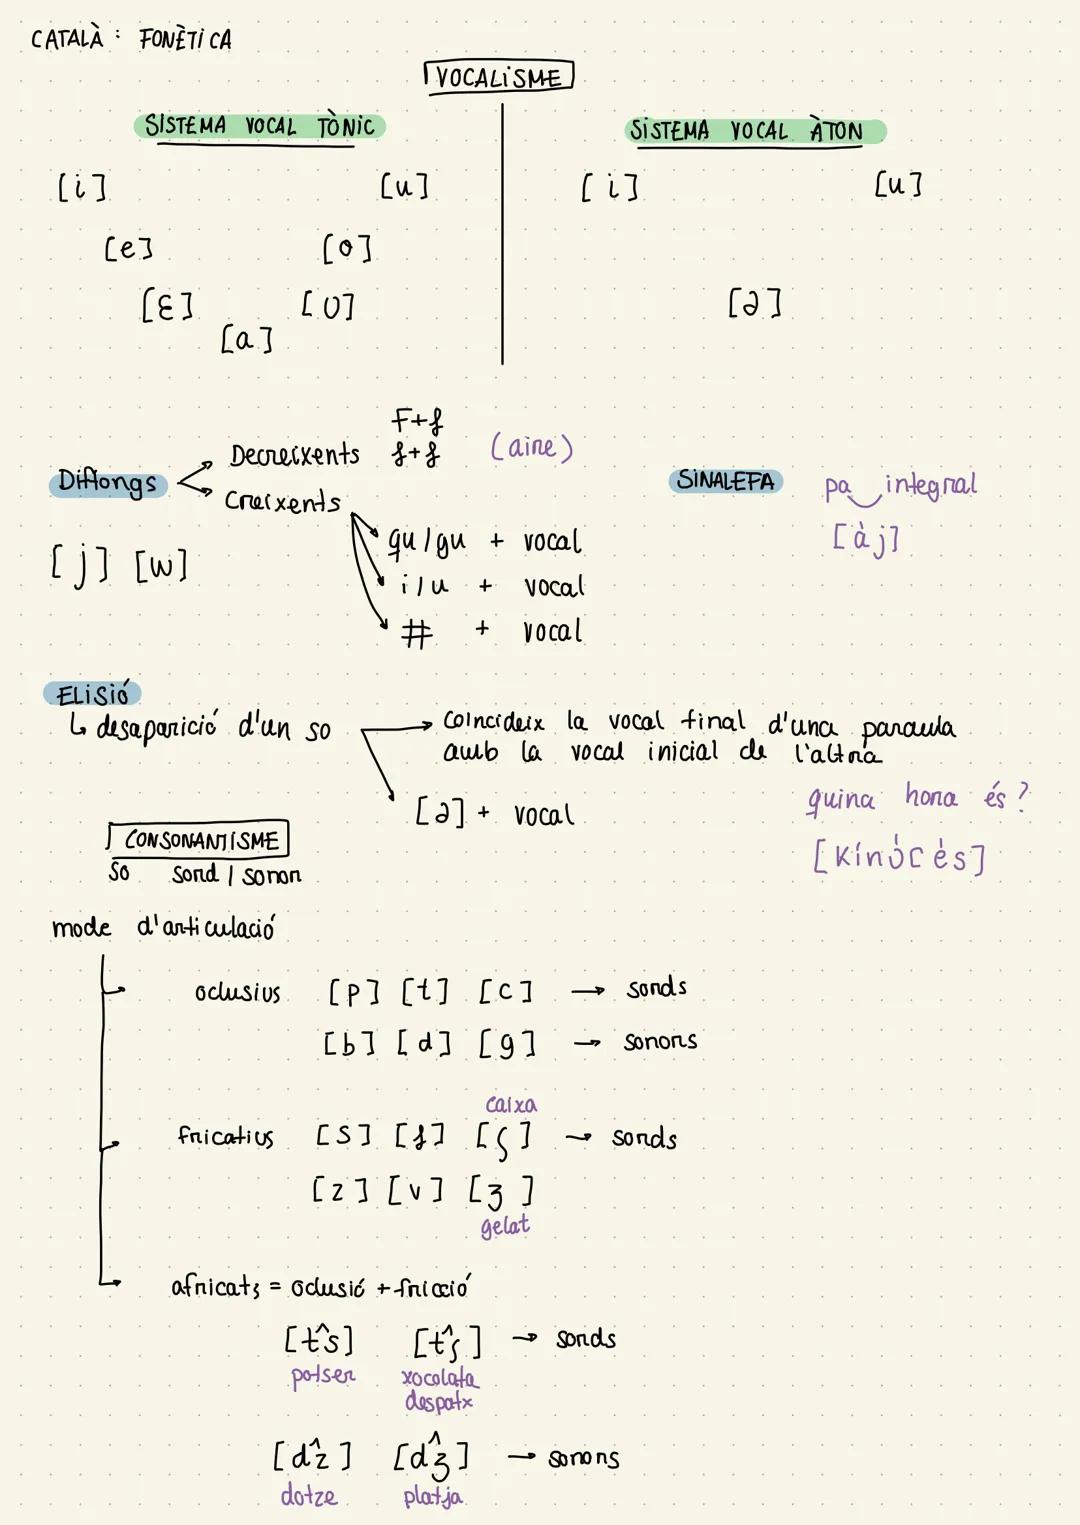 CATALÀ : FONÈTICA
VOCALISME
SISTEMA VOCAL TÒNIC
[i] [u]
[e] [o]
[ɛ] [U]
[a]
SISTEMA VOCAL ÀTON
[i] [u]
[ə]
Diftongs
Decreixents F+f
f+f (aire)
Creixents
qu/gu + vocal
i/u + vocal
# + vocal
[j] [w]
SINALEFA pa‿integral
[àj]
ELISIÓ
↳ desaparició d'un so
→ Coincideix la vocal final d'una paraula
amb la vocal inicial de l'altra
[ə] + vocal
quina hora és?
[Kínɔ́ɾés]
CONSONANTISME
So Sord / sonor
mode d'articulació
oclusius [p] [t] [c] → sords
[b] [d] [g] → sonors
caixa
fricatius [s] [f] [ʃ] → sords
[z] [v] [ʒ]
gelat
africats = oclusió + fricció
[t^s] [t^ʃ] → sords
potser xocolata
despatx
[d^z] [d^ʒ] → sonors
dotze platja